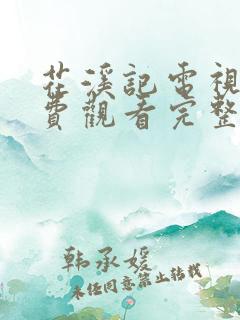 茌溪記電視
費觀看完整
韩承媛
未经同意禁止转载